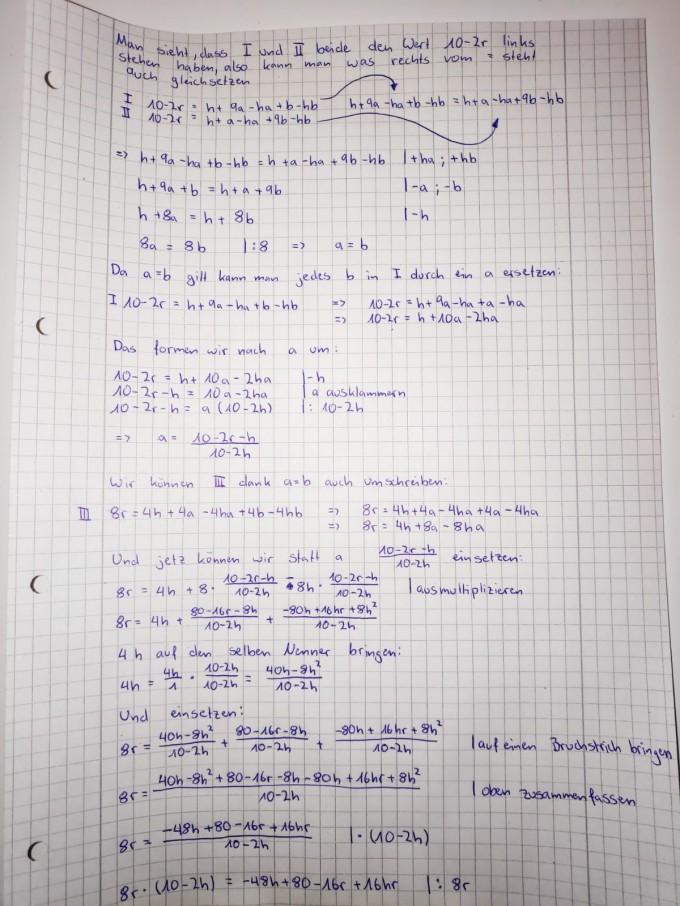 Man sieht, dass I und II beide den Wert 10-2r links
stehen haben, also kann man was rechts vom = steht
auch gleichsetzen
I 10-2r = h+ 9a-ha+b-hb h+9a-ha+b-hb = h+a-ha+9b-hb
II 10-2r = h+ a-ha +9b-hb
=> h+9a-ha+b-hb = h+a-ha+9b-hb |+ha ; +hb
h+9a+b = h+a+9b |-a ; -b
h+8a = h+ 8b |-h
8a = 8b |:8 => a=b
Da a=b gilt kann man jedes b in I durch ein a ersetzen:
I 10-2r = h+9a-ha+b-hb => 10-2r = h+9a-ha+a-ha
=> 10-2r = h+10a-2ha
Das formen wir nach a um:
10-2r = h+ 10a-2ha |-h
10-2r-h = 10a-2ha |a ausklammern
10-2r-h = a (10-2h) |: 10-2h
=> a = (10-2r-h)/(10-2h)
Wir können III dank a=b auch umschreiben:
III 8r = 4h+4a-4ha+4b-4hb => 8r = 4h+4a-4ha+4a-4ha
=> 8r = 4h+8a-8ha
Und jetz können wir statt a (10-2r-h)/(10-2h) einsetzen:
8r = 4h + 8 · (10-2r-h)/(10-2h) - 8h · (10-2r-h)/(10-2h) |ausmultiplizieren
8r = 4h + (80-16r-8h)/(10-2h) + (-80h+16hr+8h²)/(10-2h)
4h auf den selben Nenner bringen:
4h = 4h/1 · (10-2h)/(10-2h) = (40h-8h²)/(10-2h)
Und einsetzen:
8r = (40h-8h²)/(10-2h) + (80-16r-8h)/(10-2h) + (-80h+16hr+8h²)/(10-2h) |auf einen Bruchstrich bringen
8r = (40h-8h²+80-16r-8h-80h+16hr+8h²)/(10-2h) |oben zusammenfassen
8r = (-48h+80-16r+16hr)/(10-2h) |·(10-2h)
8r·(10-2h) = -48h+80-16r+16hr |: 8r